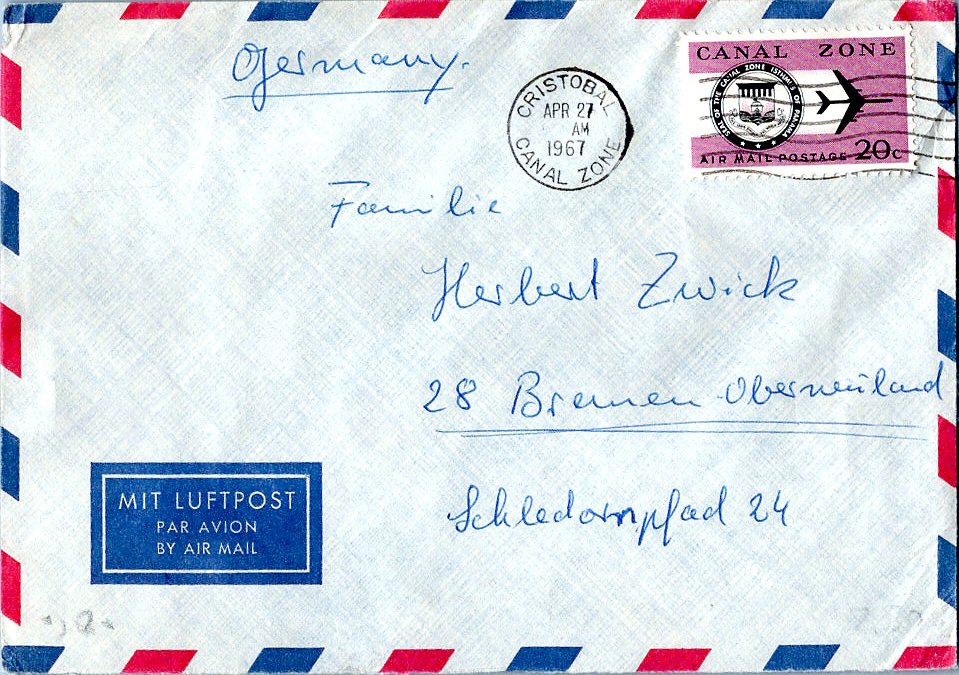 Germany.
CRISTOBAL
APR 27
AM
1967
CANAL ZONE
CANAL ZONE
SEAL OF THE CANAL ZONE ISTHMUS OF PANAMA
AIR MAIL POSTAGE 20c
Familie
Herbert Zwick
28 Bremen-Oberneuland
Schledornpfad 24
MIT LUFTPOST
PAR AVION
BY AIR MAIL